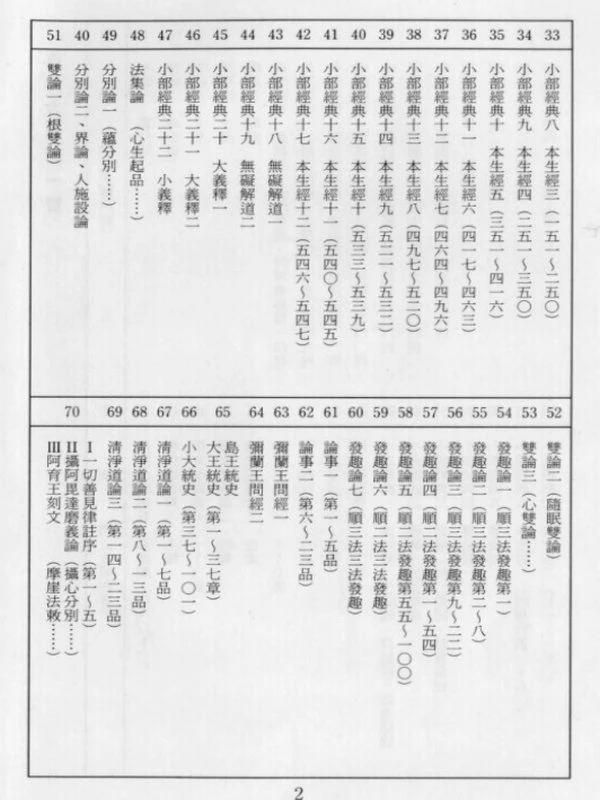 33 小部經典八 本生經三（一五一～二五〇）
34 小部經典九 本生經四（二五一～三五〇）
35 小部經典十 本生經五（三五一～四一六）
36 小部經典十一 本生經六（四一七～四六三）
37 小部經典十二 本生經七（四六四～四九六）
38 小部經典十三 本生經八（四九七～五二〇）
39 小部經典十四 本生經九（五二一～五三二）
40 小部經典十五 本生經十（五三三～五三九）
41 小部經典十六 本生經十一（五四〇～五四五）
42 小部經典十七 本生經十二（五四六～五四七）
43 小部經典十八 無礙解道一
44 小部經典十九 無礙解道二
45 小部經典二十 大義釋一
46 小部經典二十一 大義釋二
47 小部經典二十二 小義釋
48 法集論 （心生起品……）
49 分別論一（蘊分別……）
40 分別論二、界論、人施設論
51 雙論一（根雙論）
52 雙論二（隨眠雙論）
53 雙論三（心雙論……）
54 發趣論一（順三法發趣第一）
55 發趣論二（順三法發趣第二～八）
56 發趣論三（順三法發趣第九～二二）
57 發趣論四（順二法發趣第一～五四）
58 發趣論五（順二法發趣第五五～一〇〇）
59 發趣論六（順二法三法發趣）
60 發趣論七（順三法三法發趣）
61 論事一（第一～五品）
62 論事二（第六～二三品）
63 彌蘭王問經一
64 彌蘭王問經二
65 島王統史
大王統史（第一～三七章）
66 小大統史（第三七～一〇一）
67 清淨道論一（第一～七品）
68 清淨道論二（第八～一三品）
69 清淨道論三（第一四～二三品）
70 Ⅰ一切善見律註序（第一～五）
Ⅱ攝阿毘達磨義論（攝心分別……）
Ⅲ阿育王刻文 （摩崖法敕……）
2